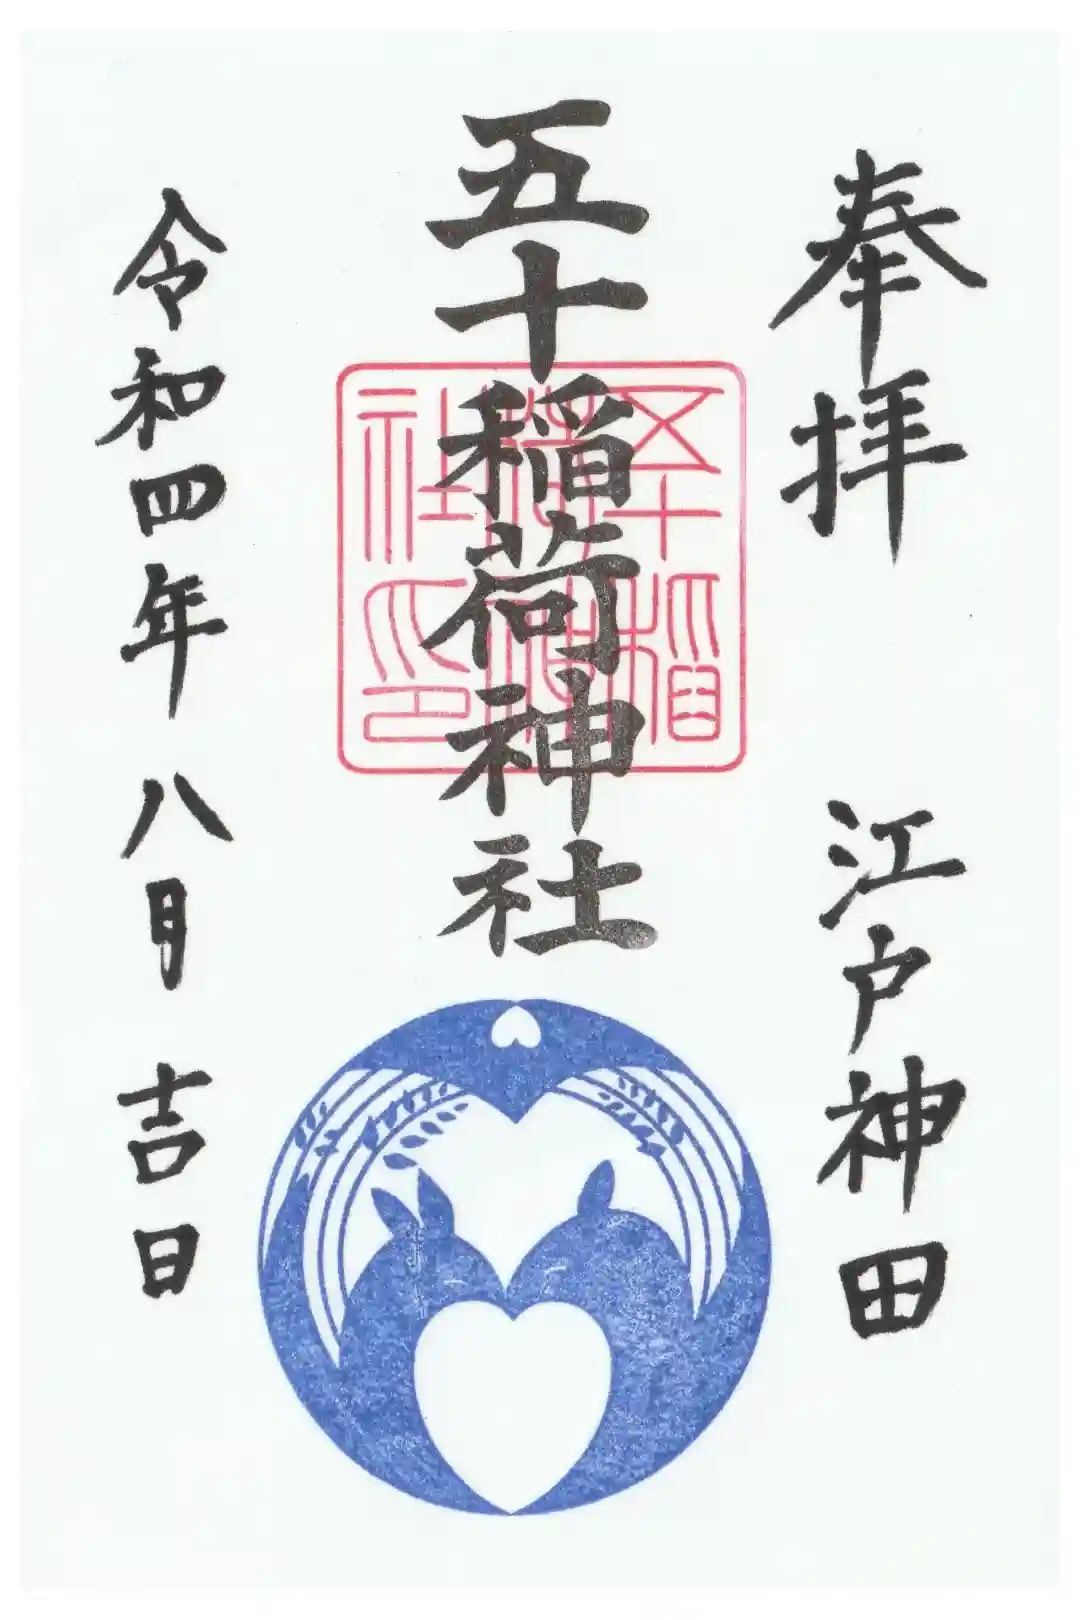 奉拝
江戸神田
五十稲荷神社
五十稲荷神社印
令和四年八月吉日